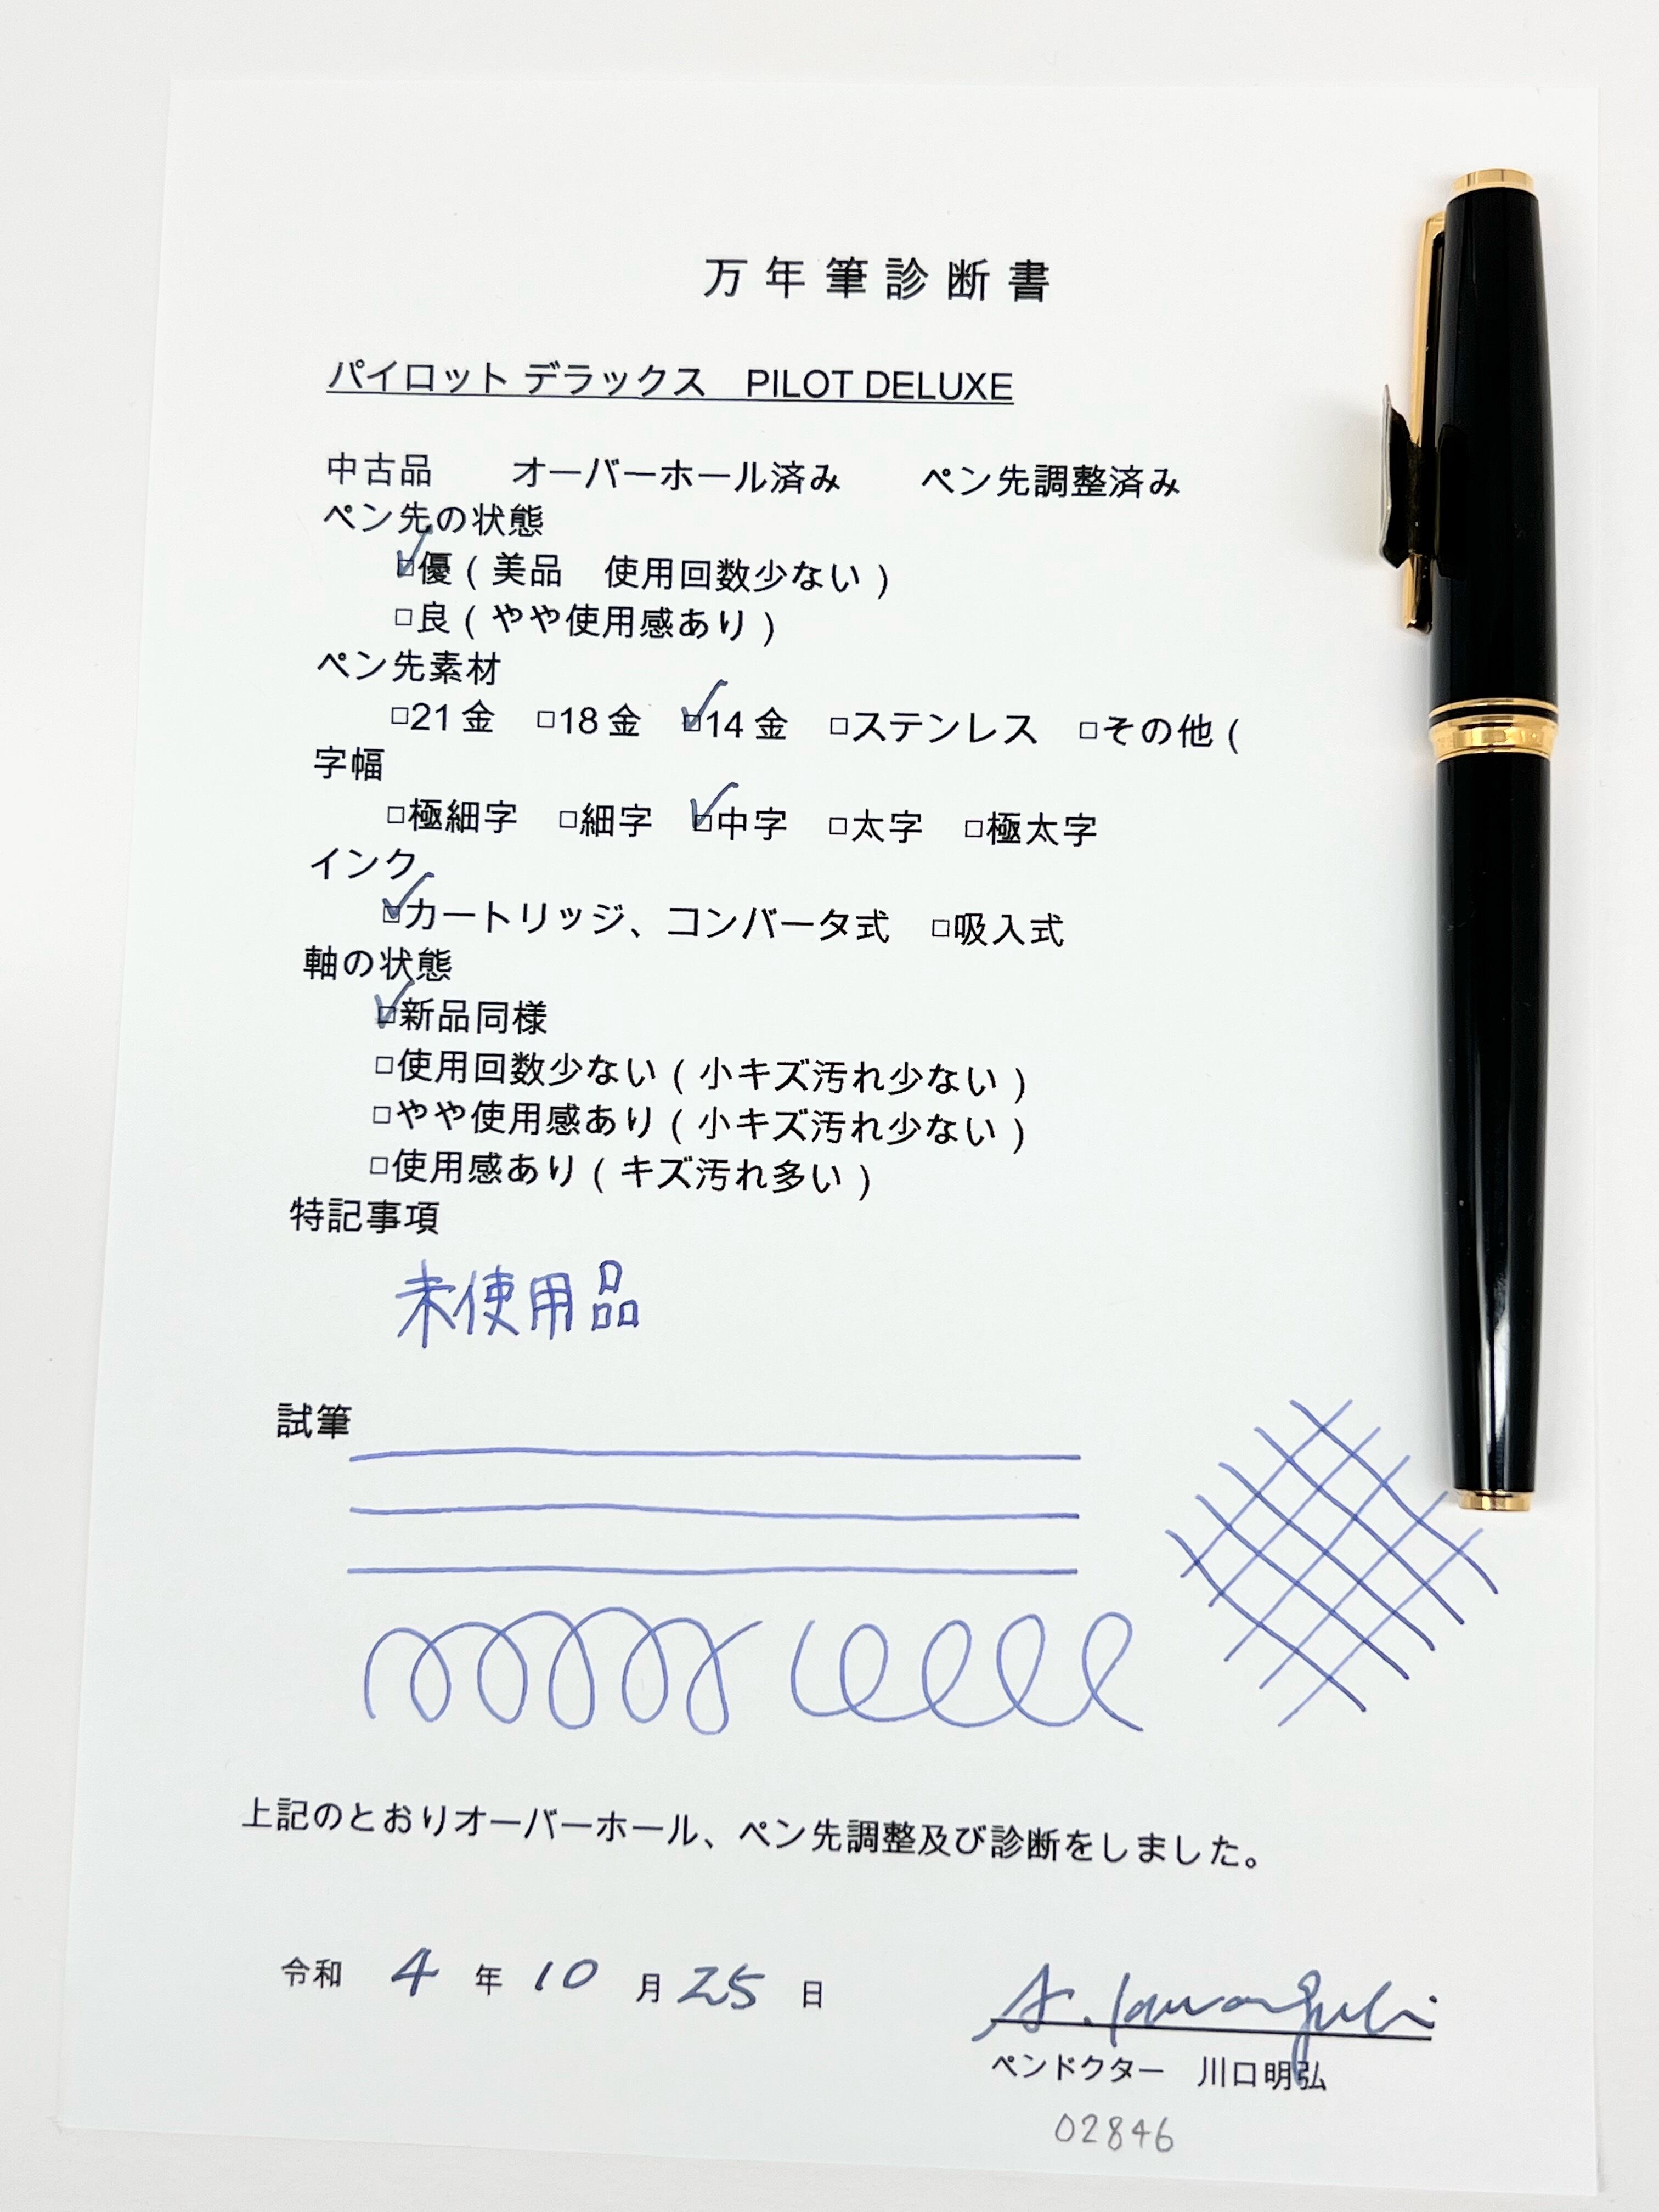 万年筆診断書
パイロット デラックス　PILOT DELUXE
中古品　　オーバーホール済み　　ペン先調整済み
ペン先の状態
☑優（美品　使用回数少ない）
□良（やや使用感あり）
ペン先素材
□21金　□18金　☑14金　□ステンレス　□その他（
字幅
□極細字　□細字　☑中字　□太字　□極太字
インク
☑カートリッジ、コンバータ式　□吸入式
軸の状態
☑新品同様
□使用回数少ない（小キズ汚れ少ない）
□やや使用感あり（小キズ汚れ少ない）
□使用感あり（キズ汚れ多い）
特記事項
未使用品
試筆
上記のとおりオーバーホール、ペン先調整及び診断をしました。
令和 4 年 10 月 25 日
A. Kawaguchi
ペンドクター　川口明弘
02846